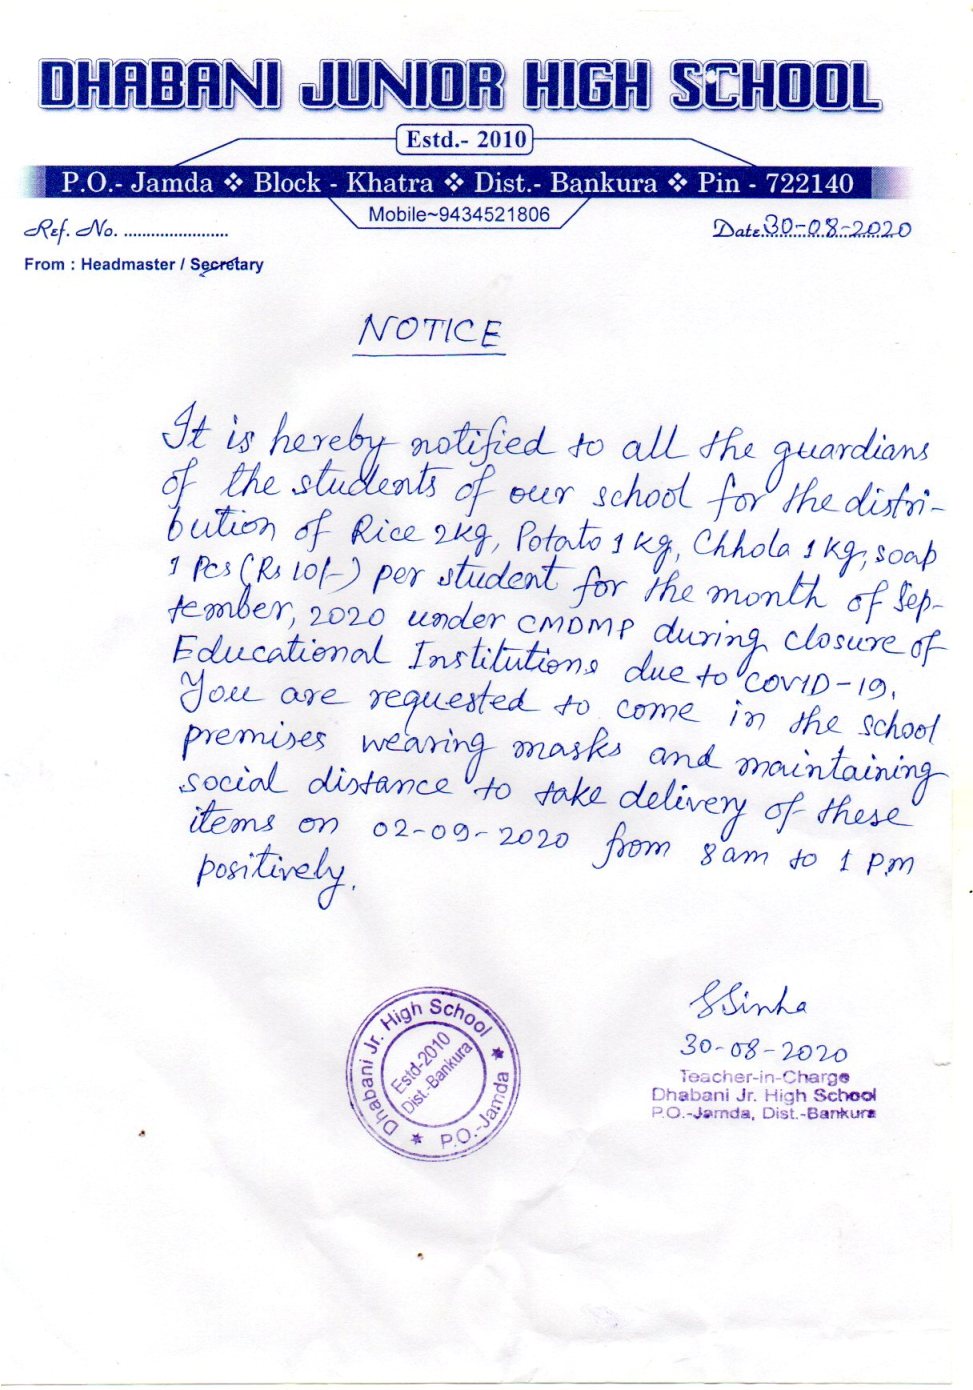 DHABANI JUNIOR HIGH SCHOOL
Estd.- 2010
P.O.- Jamda ❖ Block - Khatra ❖ Dist.- Bankura ❖ Pin - 722140
Mobile~9434521806
Ref. No. ........................
Date 30-08-2020
From : Headmaster / Secretary
NOTICE
It is hereby notified to all the guardians
of the students of our school for the distri-
bution of Rice 2kg, Potato 1 kg, Chhola 1 kg, soap
1 Pcs (Rs 10/-) per student for the month of Sep-
tember, 2020 under CMDMP during closure of
Educational Institutions due to COVID-19.
You are requested to come in the school
premises wearing masks and maintaining
social distance to take delivery of these
items on 02-09-2020 from 8 am to 1 P.m
positively.
SSinha
30-08-2020
Teacher-in-Charge
Dhabani Jr. High School
P.O.-Jamda, Dist.-Bankura
Dhabani Jr. High School
Estd-2010
Dist.-Bankura
P.O.-Jamda